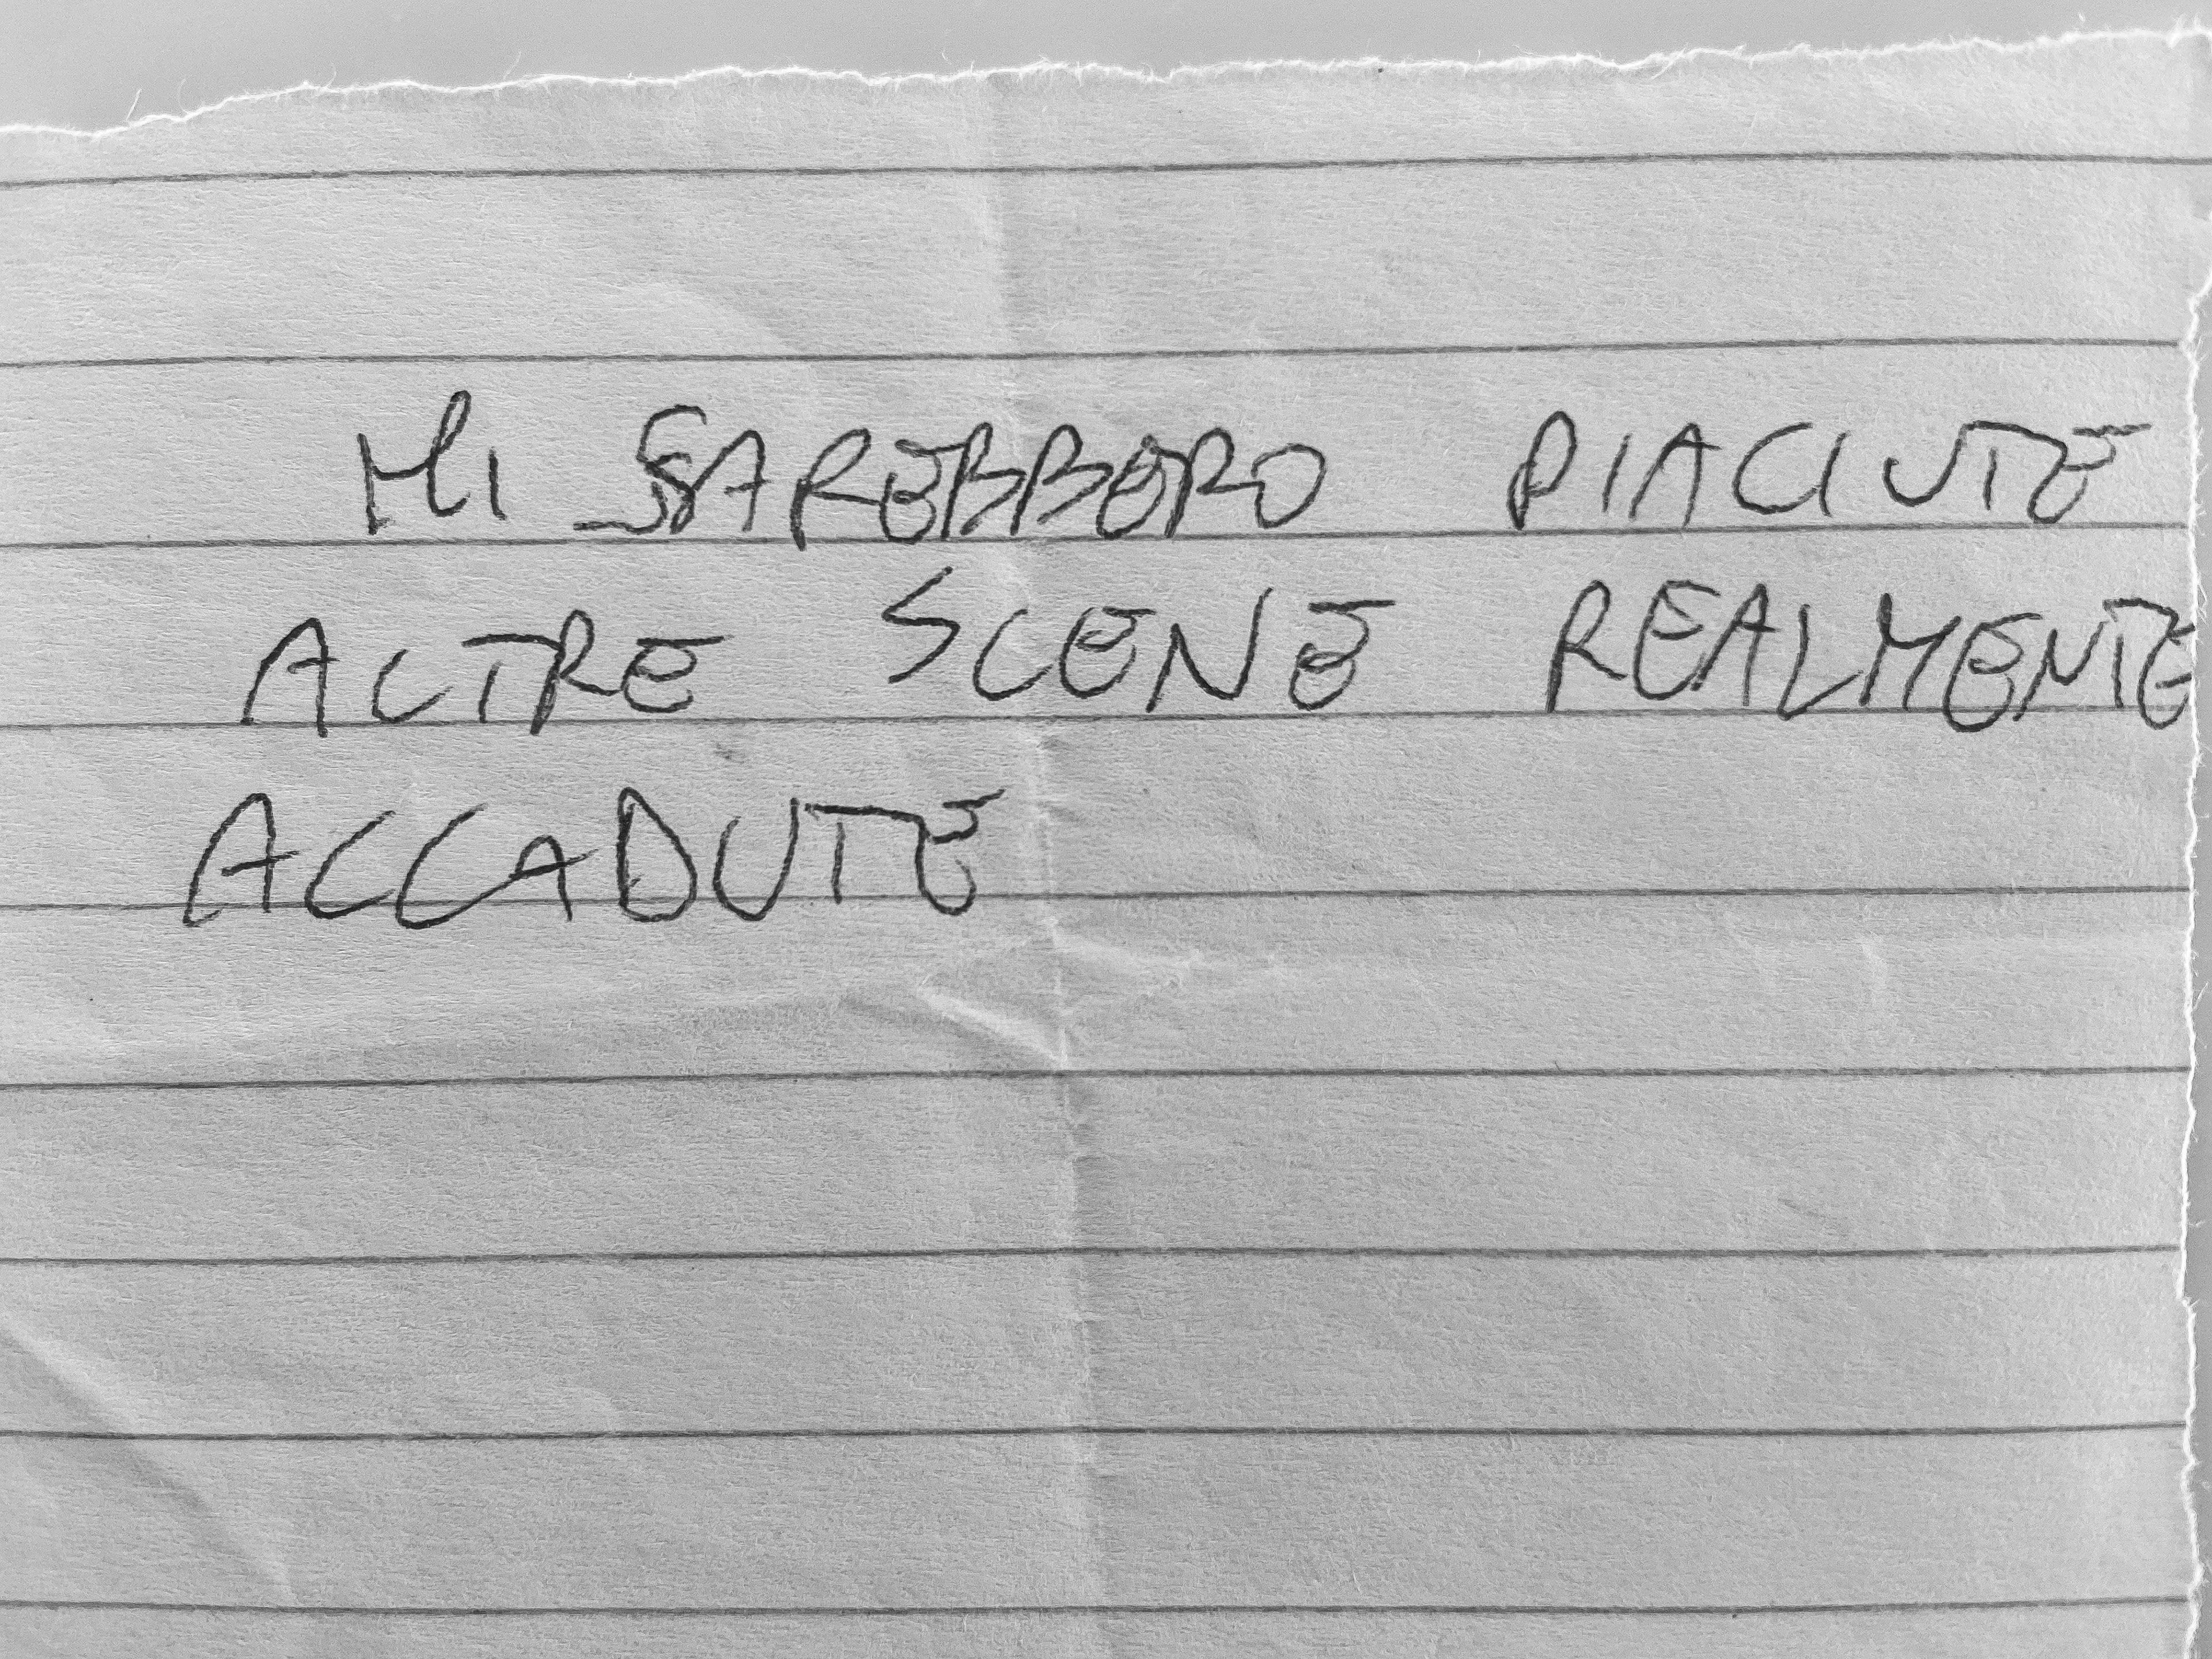 MI SAREBBERO PIACIUTE
ALTRE SCENE REALMENTE
ACCADUTE